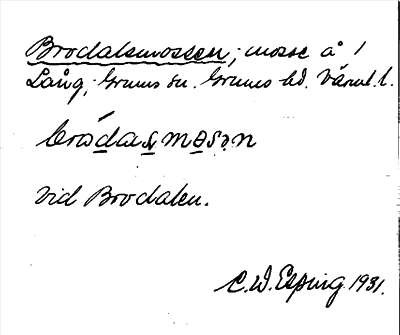 Brodalsmossen; mosse å 1
Lång; Grums sn. Grums hd. Värml. l.
bròdaʂmɵsən
vid Brodalen.
C.W. Esping 1931.